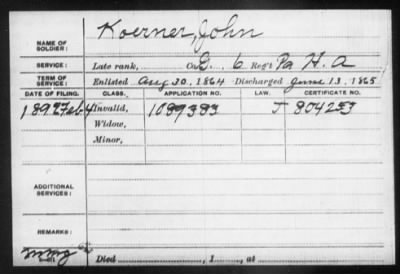 Koerner, John
NAME OF SOLDIER:
SERVICE: Late rank, Co. G. 6 Reg't Pa H. A
TERM OF SERVICE: Enlisted Aug 30, 1864 Discharged June 13, 1865
DATE OF FILING. CLASS. APPLICATION NO. LAW. CERTIFICATE NO.
1892 Feb 4 Invalid, 1089383 J 804253
Widow,
Minor,
ADDITIONAL SERVICES:
REMARKS:
Died , 1 , at